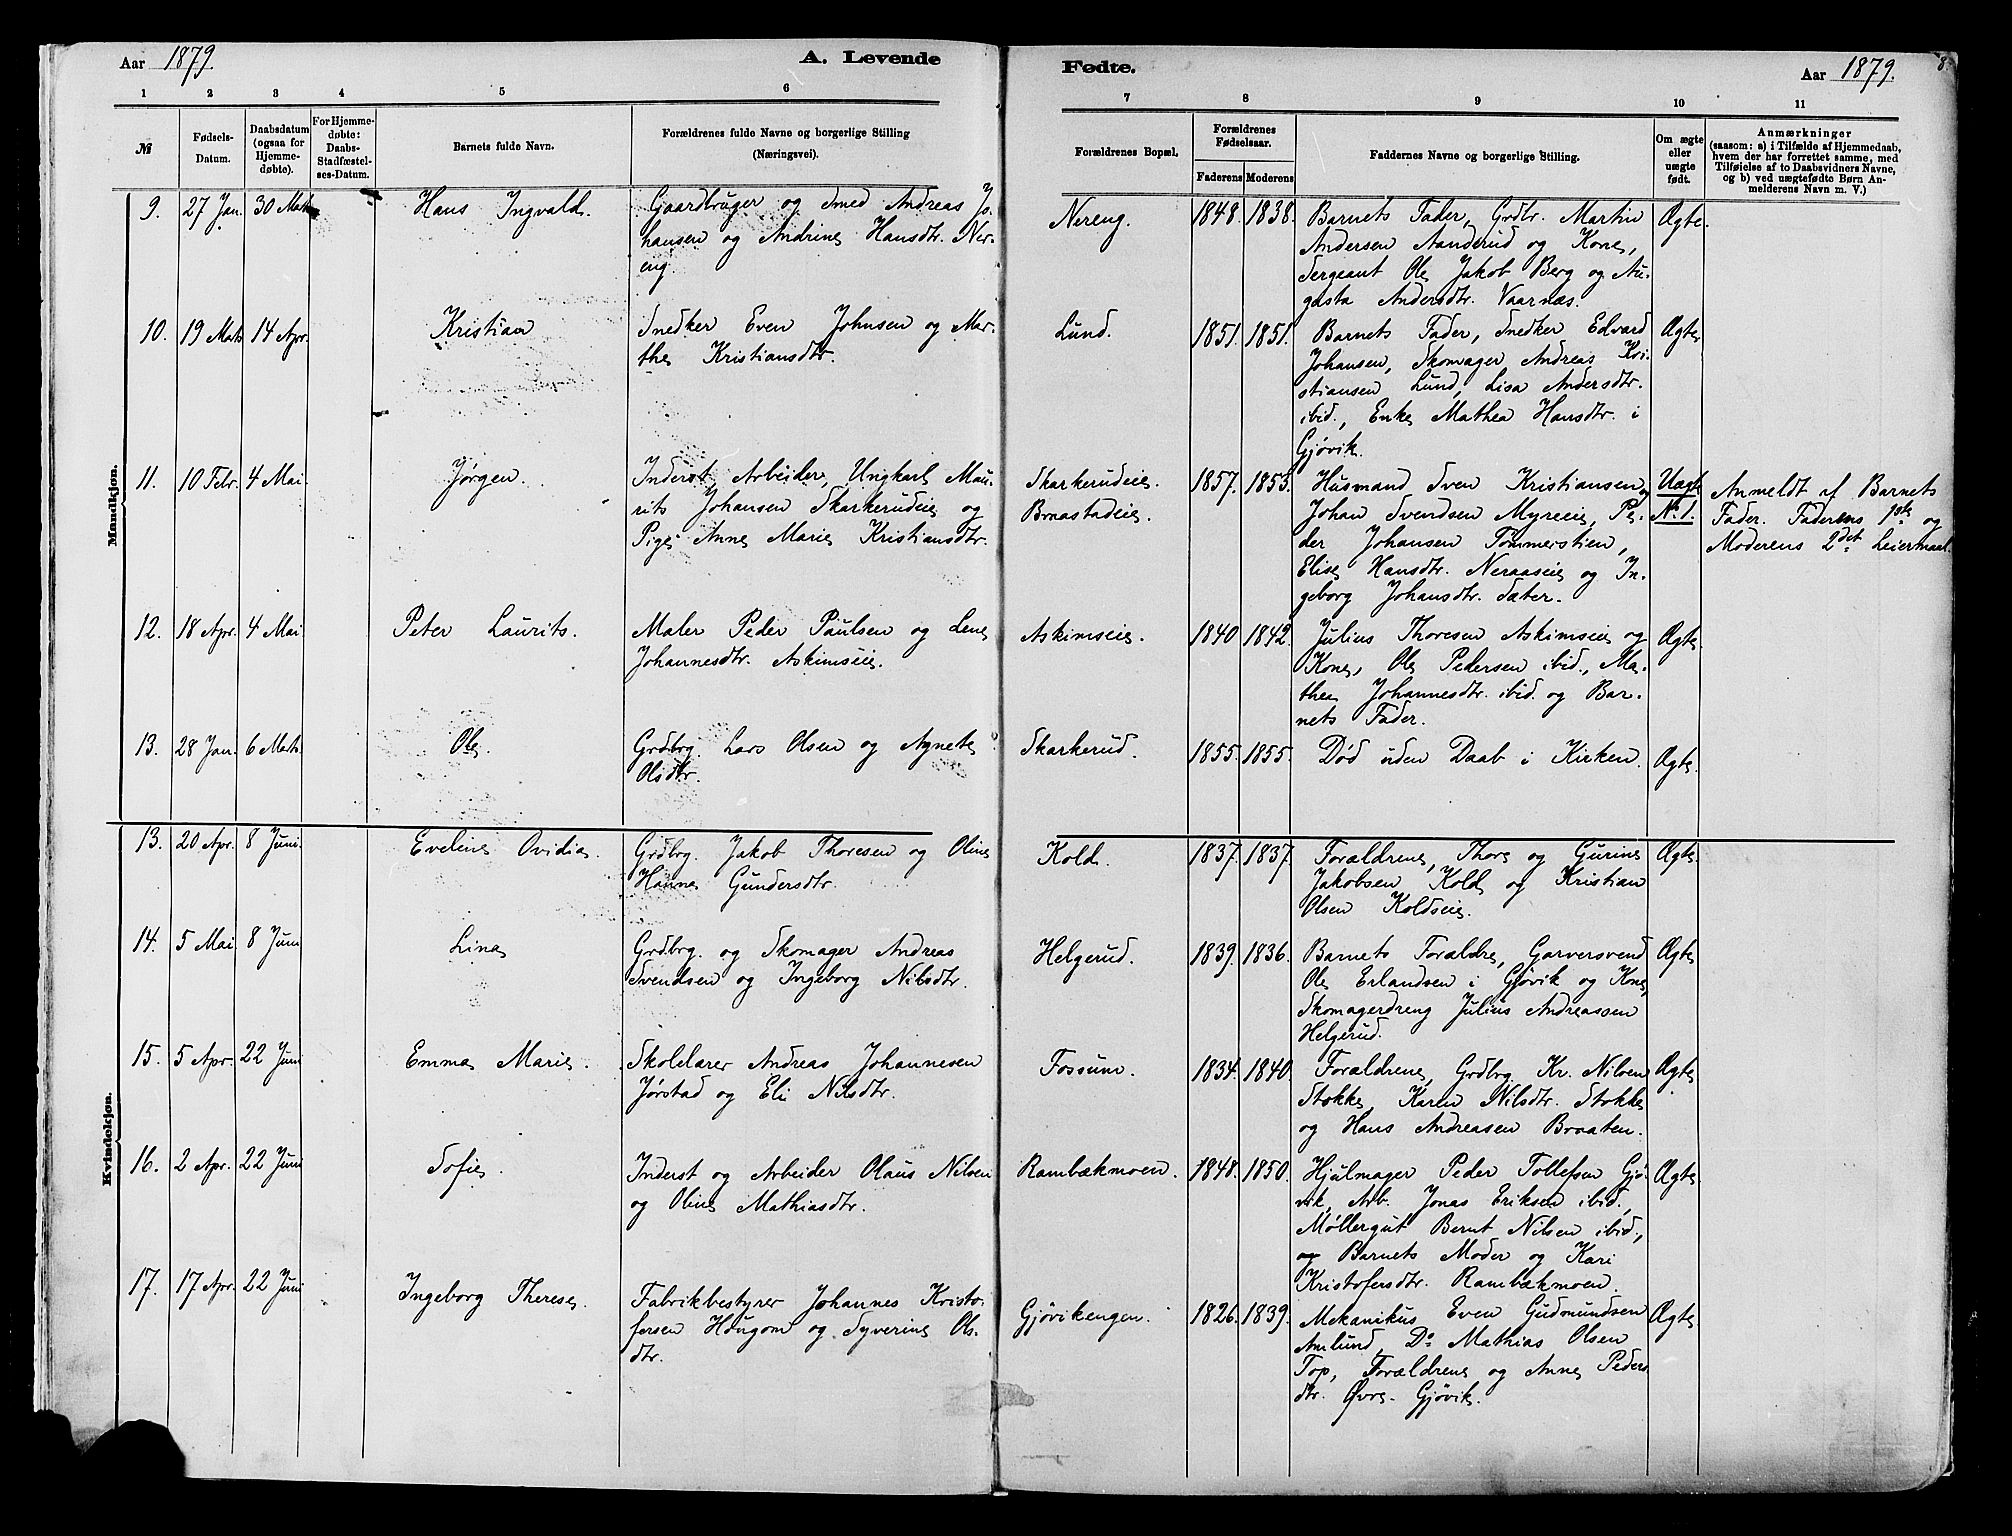 Aar 1879.
A. Levende
1 2 3 4 5 6
№
Fødsels-
Datum.
Daabsdatum
(ogsaa for
Hjemme-
døbte).
For Hjemme-
døbte:
Daabs-
Stadfæstel-
ses-Datum.
Barnets fulde Navn.
Forældrenes fulde Navne og borgerlige Stilling
(Næringsvei).
Mandkjøn.
9. 27 Jan. 30 Mats Hans Ingvald. Gaardbruger og Smed Andreas Jo-
hansen og Andrine Hansdtr. Ner-
eng.
10. 19 Mats 14 Apr. Kristian Snedker Even Johnsen og Mar-
the Kristiansdtr.
11. 10 Febr. 4 Mai. Jørgen. Inderst, Arbeider, Ungkarl Mau-
rits Johansen Skarkerudeie og
Pige Anne Marie Kristiansdtr.
12. 18 Apr. 4 Mai Peter Laurits. Maler Peder Paulsen og Lene
Johannesdtr. Askimseie.
13. 28 Jan. 6 Mats. Ole. Grdbrg. Lars Olsen og Agnete
Olsdtr.
Kvindekjøn.
13. 20 Apr. 8 Juni. Eveline Ovidia. Grdbrg. Jakob Thoresen og Oline
Hanna Gundersdtr.
14. 5 Mai 8 Juni Lina Grdbrg. og Skomager Andreas
Svendsen og Ingeborg Nilsdtr.
15. 5 Apr. 22 Juni Emma Marie. Skolelærer Andreas Johannesen
Jørstad og Eli Nilsdtr.
16. 2 Apr. 22 Juni Sofie. Inderst og Arbeider Olaus Nilsen
og Oline Mathiasdtr.
17. 17 Apr. 22 Juni Ingeborg Therese. Fabrikbestyrer Johannes Kristo-
fersen Haugom og Syverine Ols-
dtr.
Fødte.
Aar 1879.
8.
7 8 9 10 11
Forældrenes Bopæl.
Forældrenes
Fødselsaar.
Faderens Moderens
Faddernes Navne og borgerlige Stilling.
Om ægte
eller
uægte
født.
Anmærkninger
(saasom: a) i Tilfælde af Hjemmedaab,
hvem der har forrettet samme, med
Tilføielse af to Daabsvidners Navne,
og b) ved uægtefødte Børn An-
melderens Navn m. V.)
Nereng. 1848. 1838. Barnets Fader, Grdbr. Martin Ægte.
Andersen Aanderud og Kone,
Sergeant Ole Jakob Berg og Au-
gusta Andersdtr. Vaarnæs.
Lund. 1851. 1851. Barnets Fader, Snedker Edvard Ægte
Johansen, Skomager Andreas Kri-
stiansen Lund, Lisa Andersdtr.
ibid., Enke Mathea Hansdtr. i
Gjøvik.
Skarkerudeie. 1857. 1853. Husmand Sven Kristiansen og Uægt. Anmeldt af Barnets
Braastadeie. Johan Svendsen Myreeie, Pe- No 1. Fader. Faderens 1ste og
der Johansen Tømmerstien, Moderens 2det Leiermaal.
Elise Hansdtr. Neraaseie og In-
geborg Johansdtr. Sæter.
Askimseie. 1840 1842 Julius Thoresen Askimseie og Ægte.
Kone, Ole Pedersen ibid., Ma-
thea Johannesdtr. ibid. og Bar-
nets Fader.
Skarkerud. 1855. 1855. Død uden Daab i Kirken. Ægte.
Kold. 1837. 1837. Forældrene, Thore og Gurine Ægte.
Jakobsen Kold og Kristian
Olsen Koldseie.
Helgerud. 1839. 1836. Barnets Forældre, Garversvend Ægte
Ole Erlandsen i Gjøvik og Kone,
Skomagerdreng Julius Andreassen
Helgerud.
Fossum. 1834. 1840. Forældrene, Grdbrg Kr. Nilsen Ægte
Stokke, Karen Nilsdtr. Stokke
og Hans Andreasen Braaten.
Rambækmoen. 1848. 1850. Hjulmager Peder Tollefsen Gjø- Ægte
vik, Arb. Jonas Eriksen ibid,
Møllergut Bernt Nilsen ibid.,
og Barnets Moder og Kari
Kristofersdtr. Rambækmoen.
Gjøvikengen. 1826. 1839. Mekanikus Even Gudmundsen Ægte
Amlund, Do Mathias Olsen
Top, Forældrene og Anne Peders-
dtr. Øvre-Gjøvik.